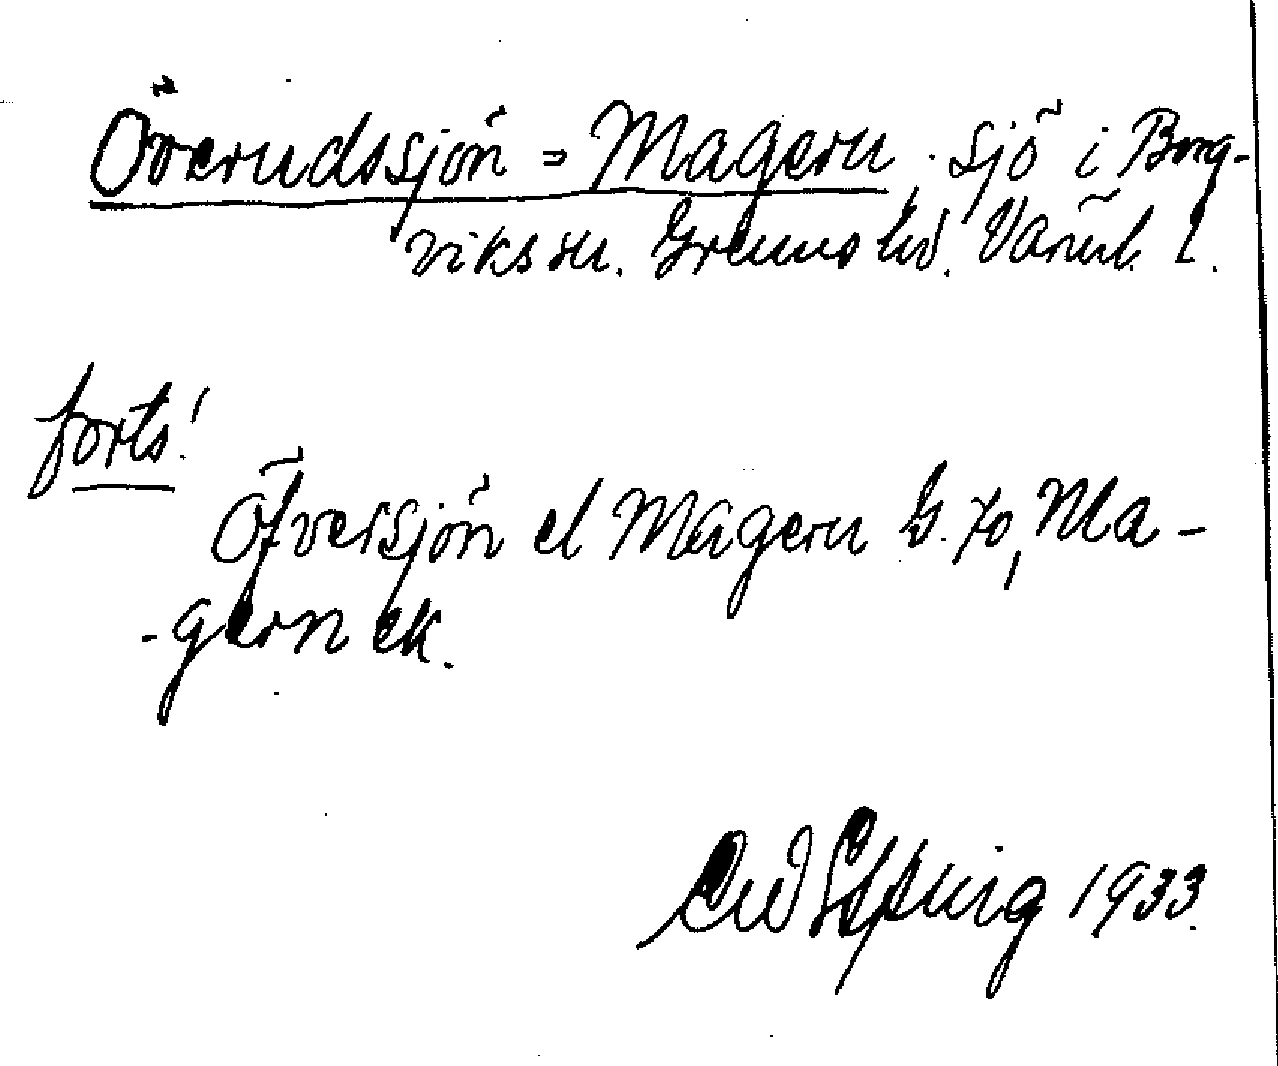 Överudssjön = Magern, sjö i Borg-
viks sn. Grums hd. Värml. l.
forts!
Öfversjön el Magern G. 70, Ma-
-gern ek.
1933.